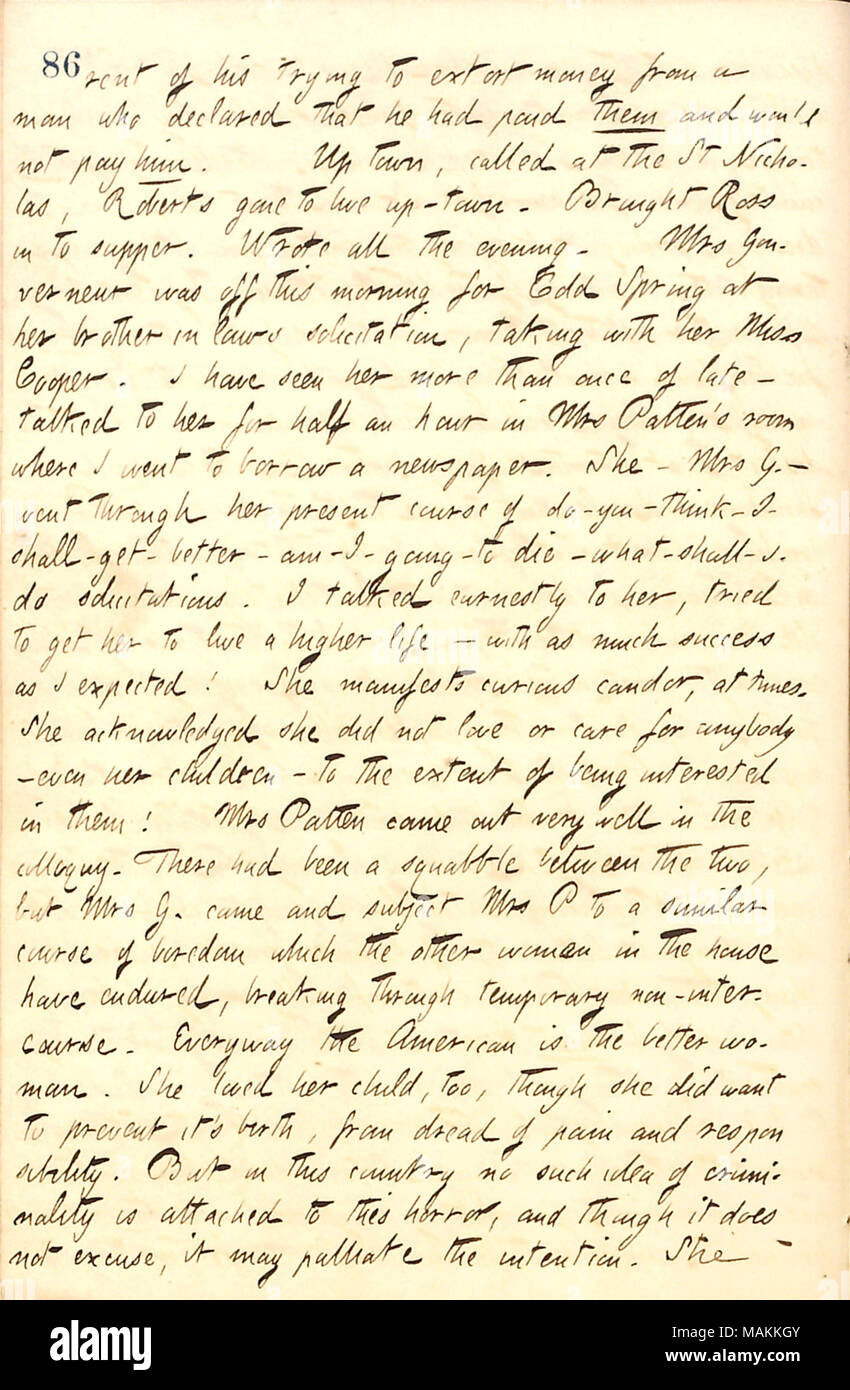 86
rent of his trying to extort money from a
man who declared that he had paid them and would
not pay him. Up town, called at the St Nicho-
las, Roberts gone to live up-town. Brought Ross
in to supper. Wrote all the evening. Mrs Gou-
verneur was off this morning for Cold Spring at
her brother in law's solicitation, taking with her Miss
Cooper. I have seen her more than once of late —
talked to her for half an hour in Mrs Patten's room
where I went to borrow a newspaper. She - Mrs G. —
went through her present course of do-you-think-I-
shall-get-better-am-I-going-to die-what-shall-I-
do solicitations. I talked earnestly to her, tried
to get her to live a higher life — with as much success
as I expected! She manifests curious candor, at times.
She acknowledged she did not love or care for anybody
- even her children - to the extent of being interested
in them! Mrs Patten came out very well in the
colloquy. There had been a squabble between the two,
but Mrs G. came and subject Mrs P to a similar
course of boredom which the other women in the house
have endured, breaking through temporary non-inter-
course. Everyway the American is the better wo-
man. She loved her child, too, though she did want
to prevent it's birth, from dread of pain and respon
sibility. But in this country no such idea of crimi-
nality is attached to this horror, and though it does
not excuse, it may palliate the intention. She -
alamy
Image ID: MAKKGY
www.alamy.com